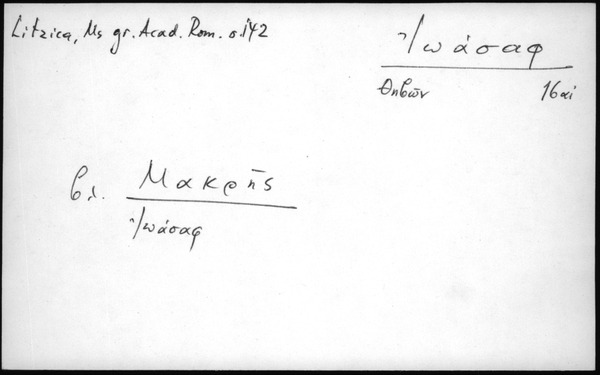 Litzica, Ms gr. Acad. Rom. σ.142
Ἰωάσαφ
Θηβῶν 16 αἰ
βλ. Μακρῆς
Ἰωάσαφ